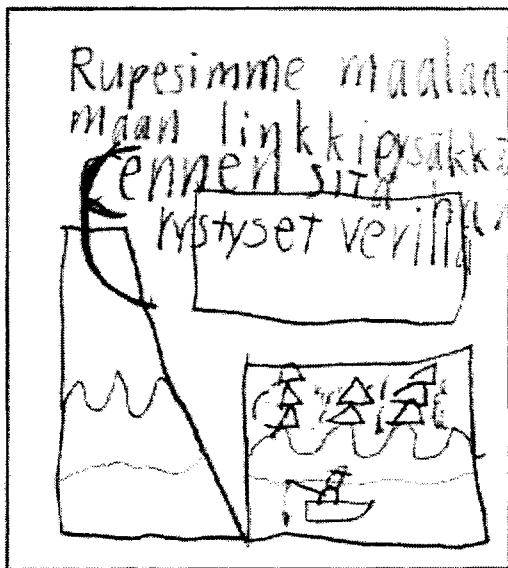 Rupesimme maalaa
maan linkkipysäkki
ennen sitä har
rystyset verillä